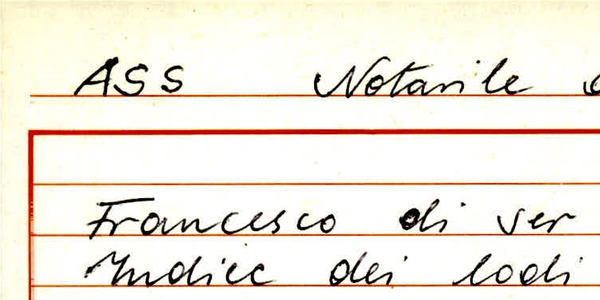 ASS Notarile
Francesco di ser
Indice dei lodi